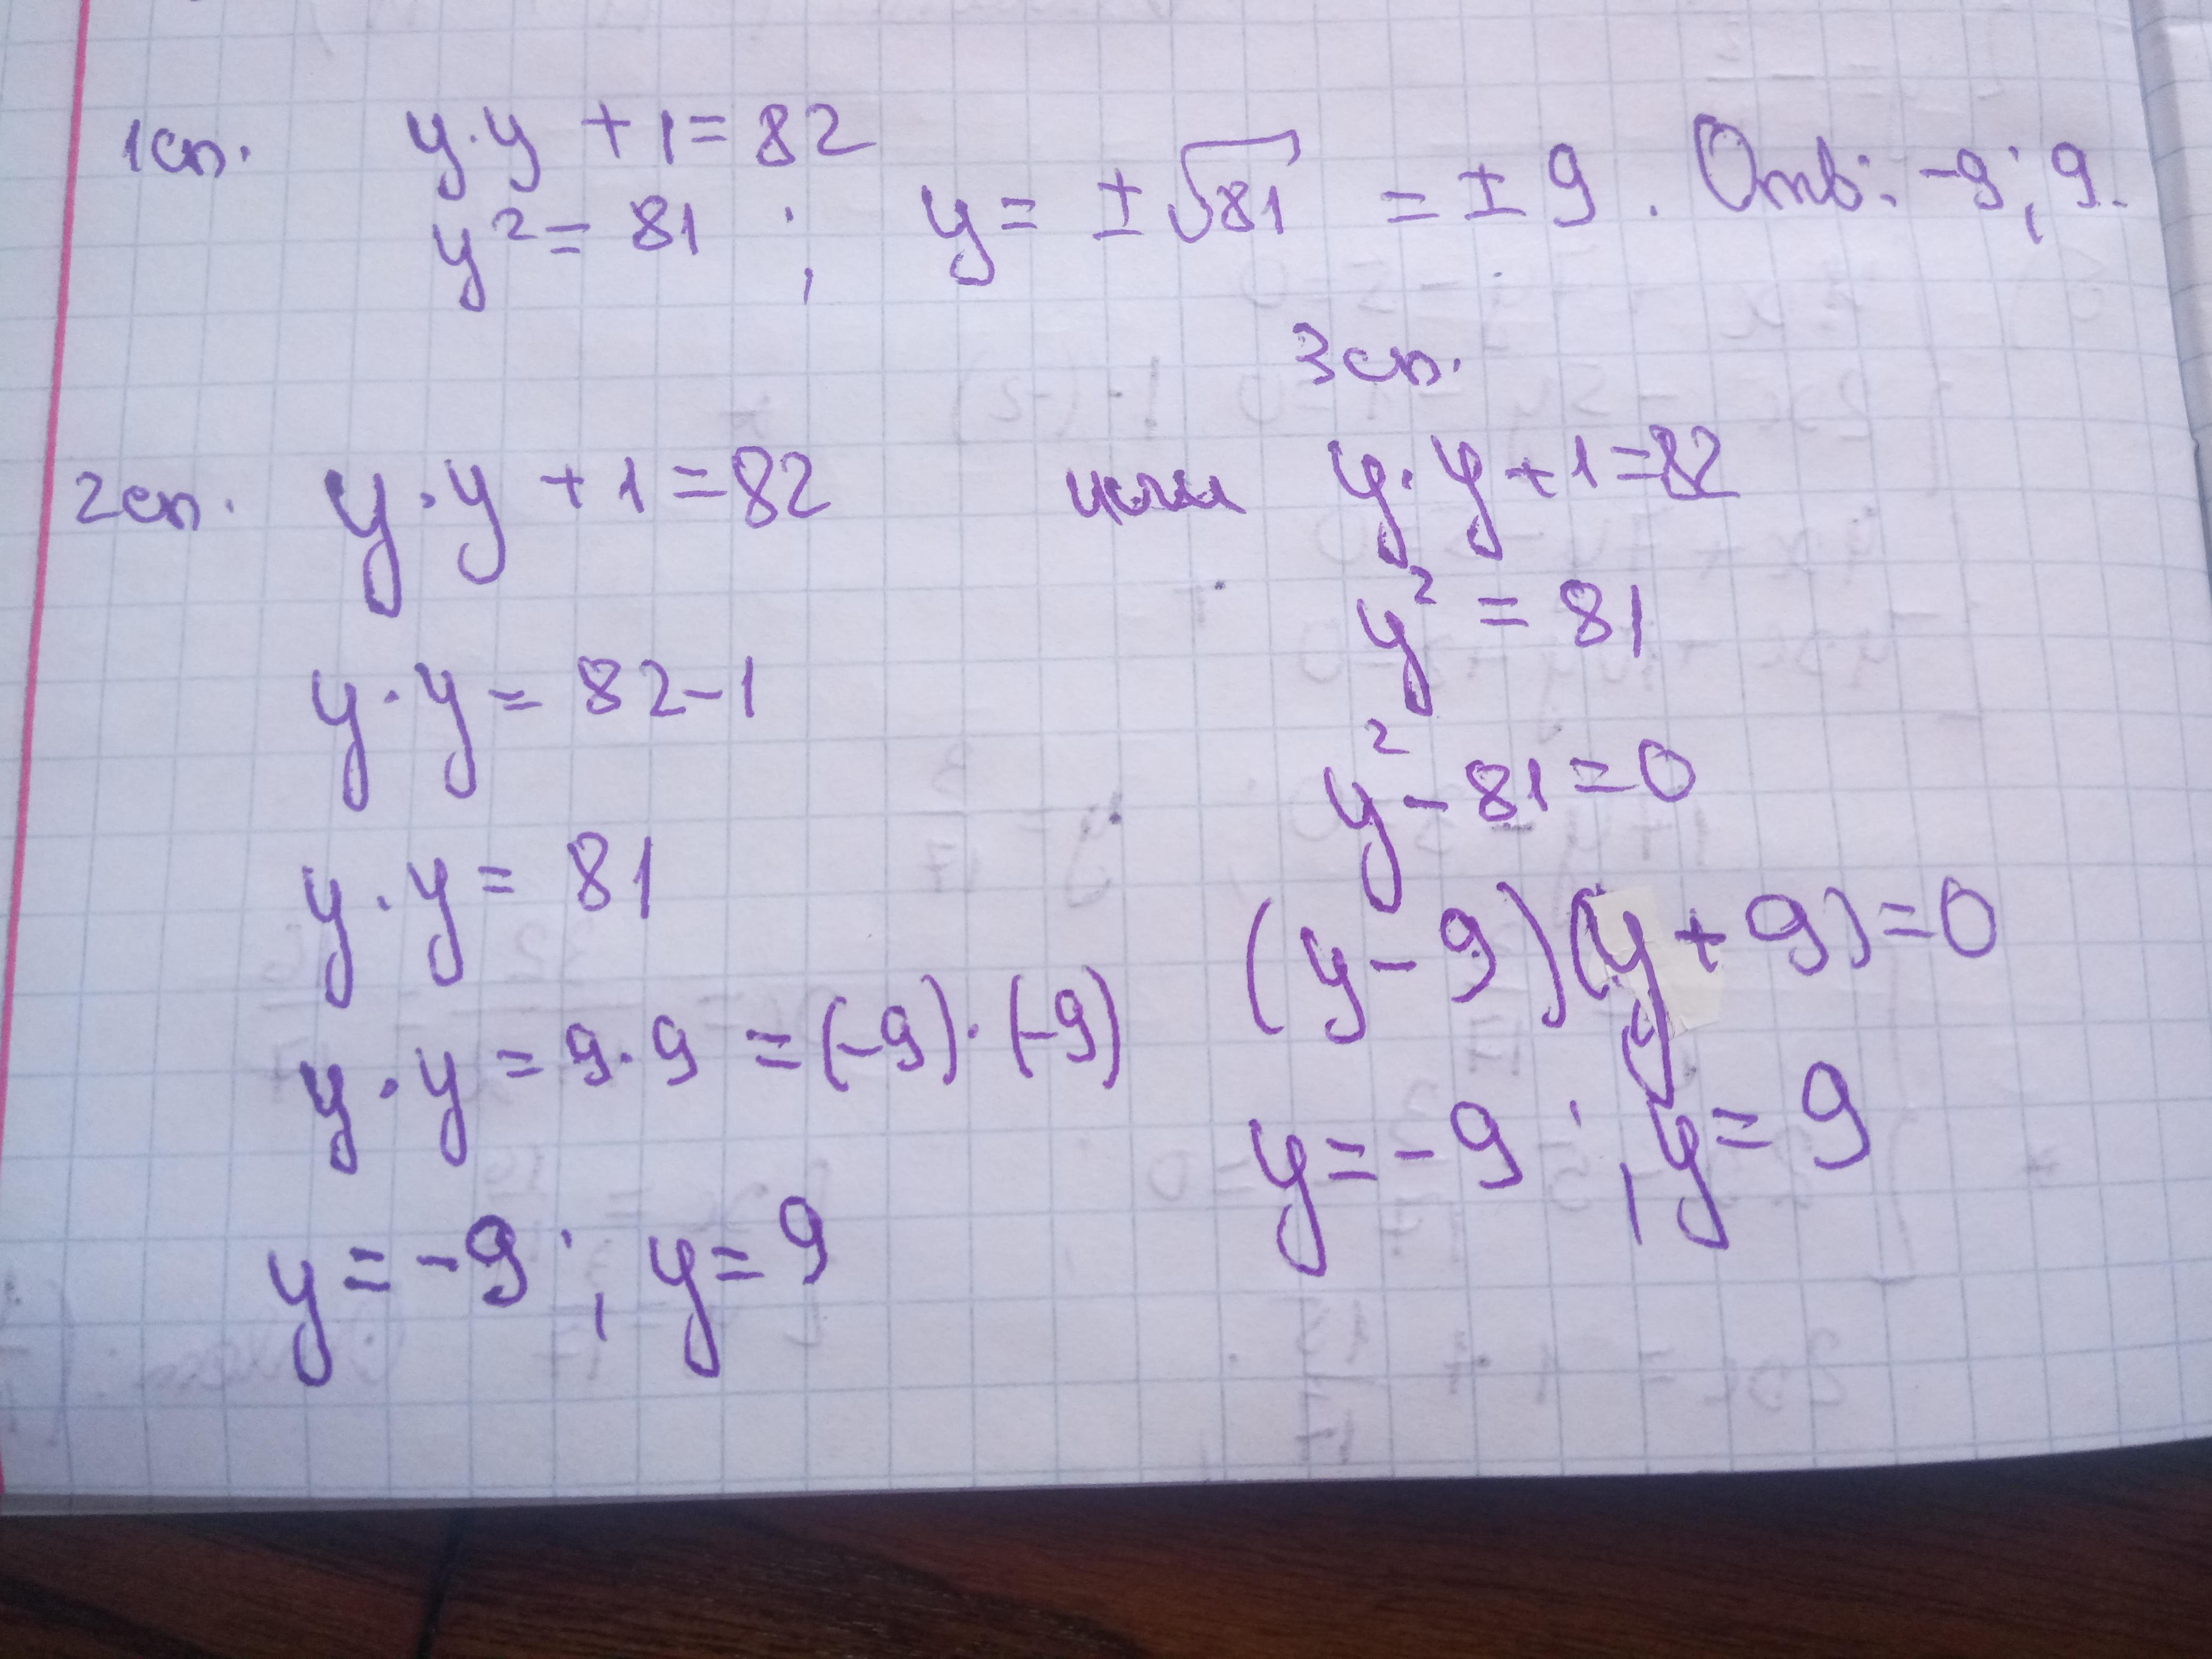 1сп. y·y + 1 = 82
y² = 81 ; y = ±√81 = ±9. Отв: -9; 9.
2сп. y·y + 1 = 82
y·y = 82-1
y·y = 81
y·y = 9·9 = (-9)·(-9)
y = -9 ; y = 9
или
3сп.
y·y + 1 = 82
y² = 81
y² - 81 = 0
(y - 9)(y + 9) = 0
y = -9 ; y = 9